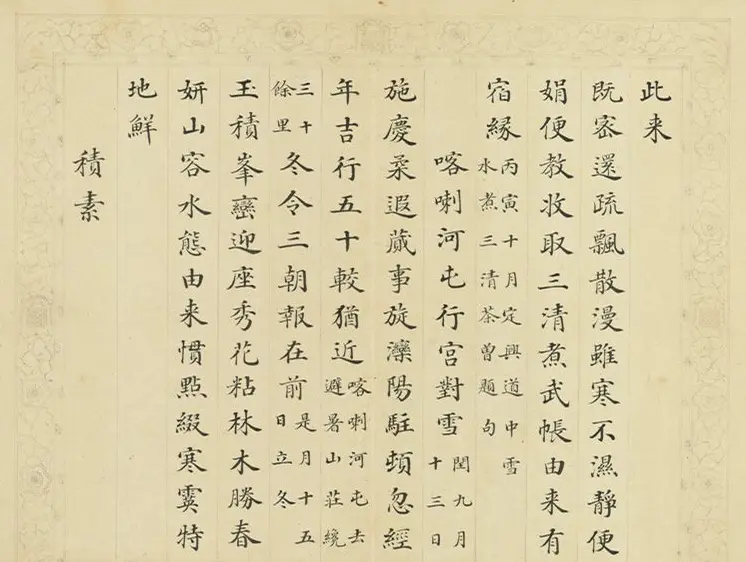 此来
既密還疏飄散漫雖寒不濕靜便
娟便教收取三清煮武帳由来有
宿緣丙寅十月定興道中雪水煮三清茶曾題句
喀喇河屯行宮對雪閏九月十三日
施慶柔遐蕆事旋灤陽駐頓忽經
年吉行五十較猶近喀喇河屯去避暑山莊纔
三十餘里冬令三朝報在前是月十五日立冬
玉積峯巒迎座秀花粘林木勝春
妍山容水態由来慣點綴寒霙特
地鮮
積素